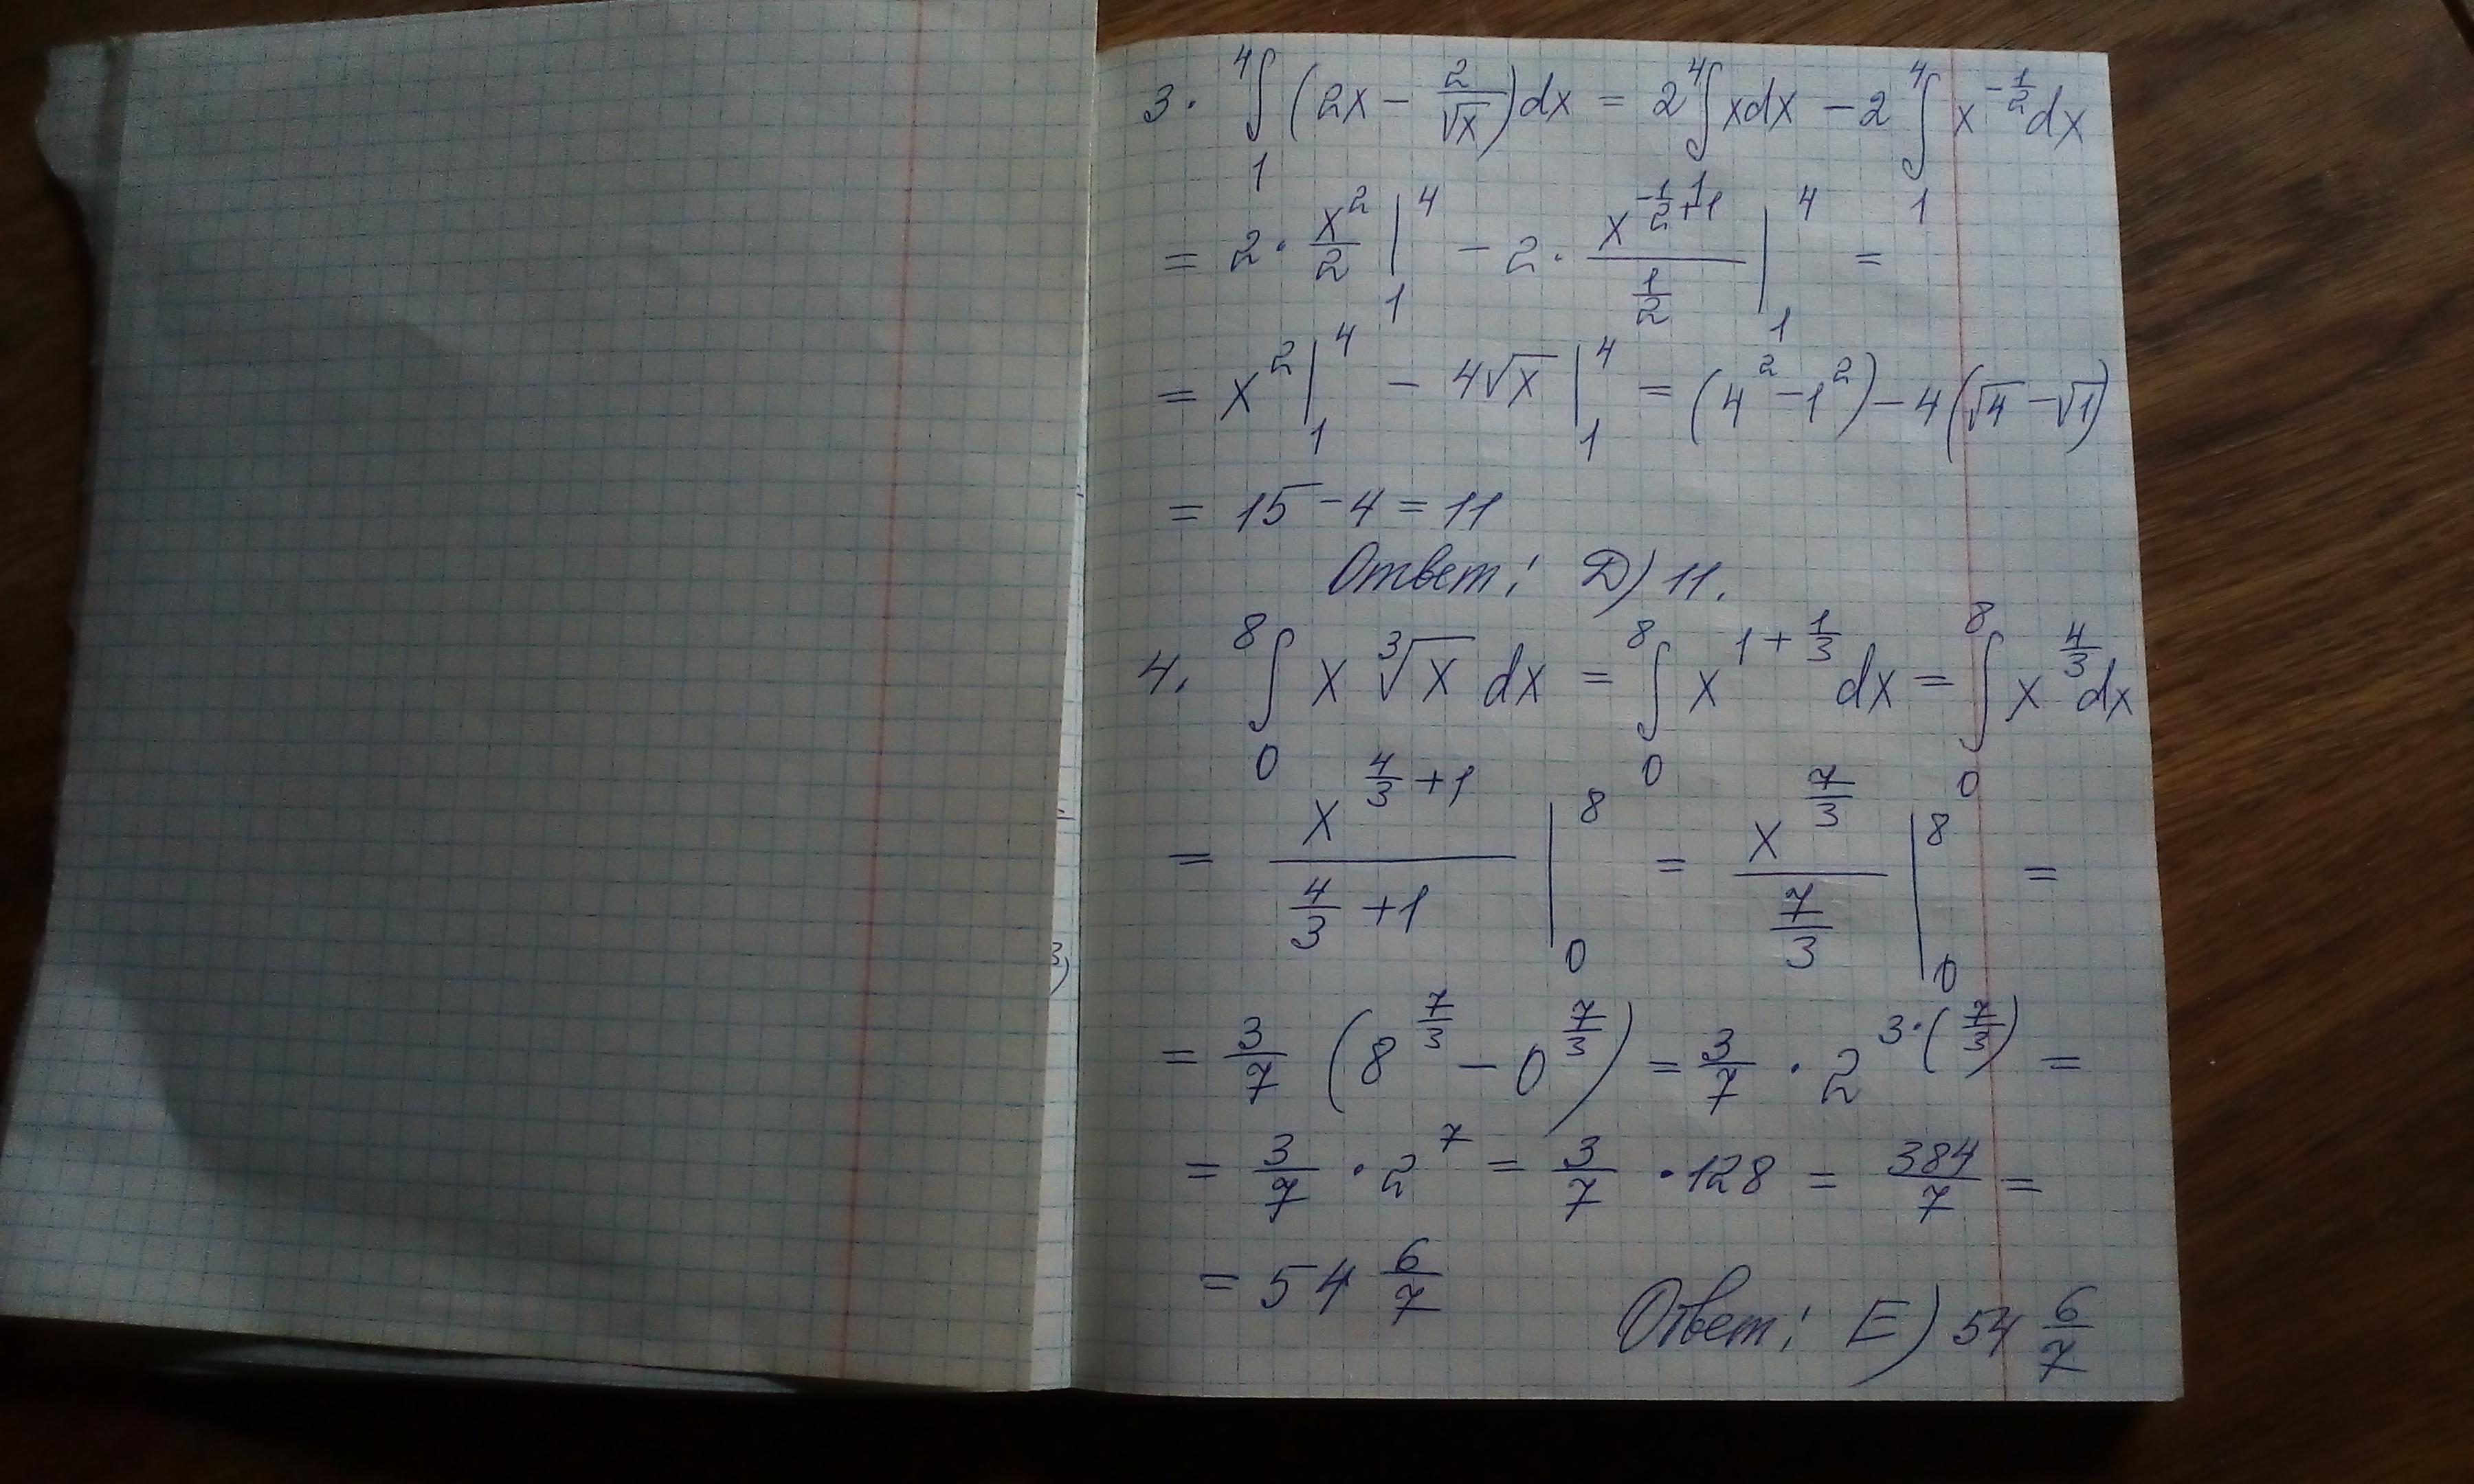 3. ∫₁⁴ (2x − 2/√x)dx = 2∫⁴xdx − 2∫₁⁴ x^(−1/2)dx
= 2 · x²/2 |₁⁴ − 2 · x^(−1/2+1)/(1/2) |₁⁴ =
= x² |₁⁴ − 4√x |₁⁴ = (4² − 1²) − 4(√4 − √1)
= 15 − 4 = 11
Ответ: D) 11.
4. ∫₀⁸ x ∛x dx = ∫₀⁸ x^(1 + 1/3) dx = ∫₀⁸ x^(4/3) dx
= x^(4/3 + 1)/(4/3 + 1) |₀⁸ = x^(7/3)/(7/3) |₀⁸ =
= 3/7 (8^(7/3) − 0^(7/3)) = 3/7 · 2^(3·(7/3)) =
= 3/7 · 2⁷ = 3/7 · 128 = 384/7 =
= 54 6/7
Ответ: E) 54 6/7
3)